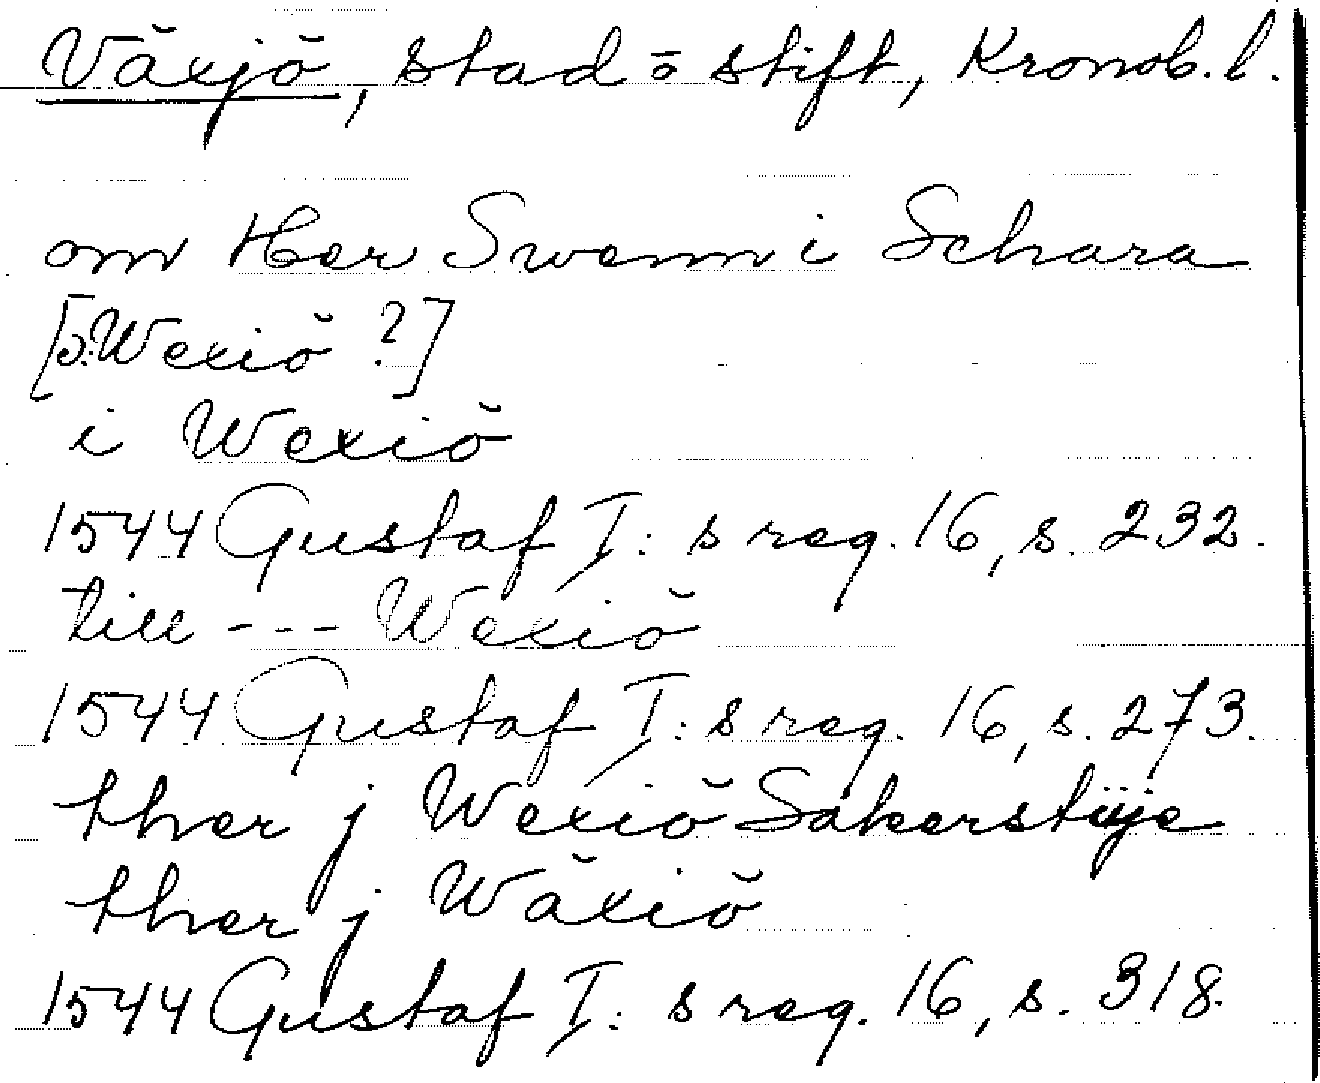 Växjö, stad o stift, Kronob. l.
om Her Swenn i Schara
[ɔ: Wexiö ?]
i Wexiö
1544 Gustaf I:s reg. 16, s. 232.
till --- Wexiö
1544 Gustaf I:s reg. 16, s. 273.
ther j Wexiö Sakerstije
ther j Wäxiö
1544 Gustaf I:s reg. 16, s. 318.